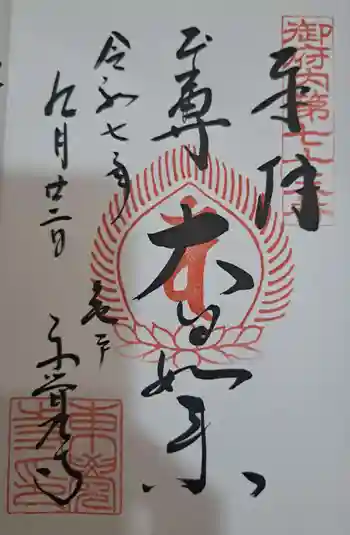 御府内第七十三番
奉拝
本尊
大日如来
令和七年
九月廿二日
亀戸
東覚寺